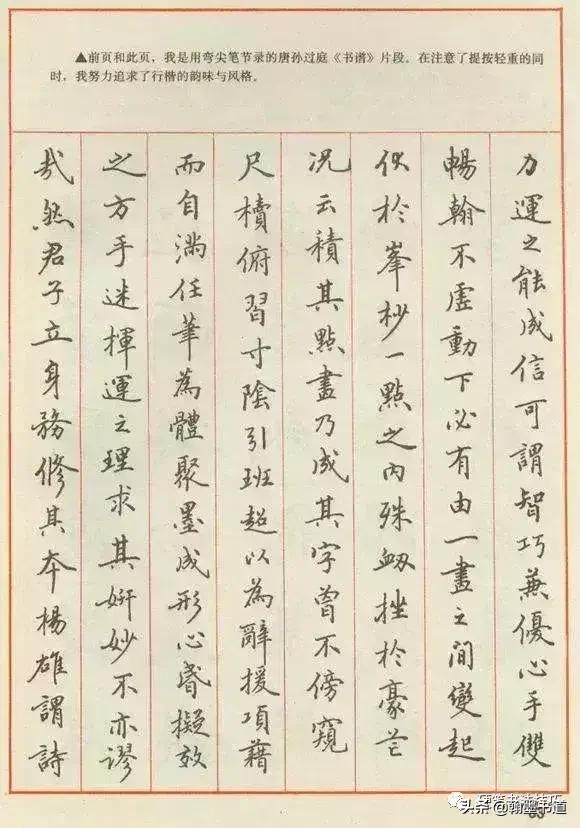 ▲前页和此页，我是用弯尖笔节录的唐孙过庭《书谱》片段。在注意了提按轻重的同
时，我努力追求了行楷的韵味与风格。
力運之能成信可謂智巧兼優心手雙
暢翰不虛動下必有由一畫之間變起
伏於峯杪一點之內殊衂挫於豪芒
況云積其點畫乃成其字曾不傍窺
尺櫝俯習寸陰引班超以為辭援項藉
而自滿任筆為體聚墨成形心昏擬效
之方手迷揮運之理求其妍妙不亦謬
哉然君子立身務修其本楊雄謂詩
硬笔书法技巧
头条@翰墨书道